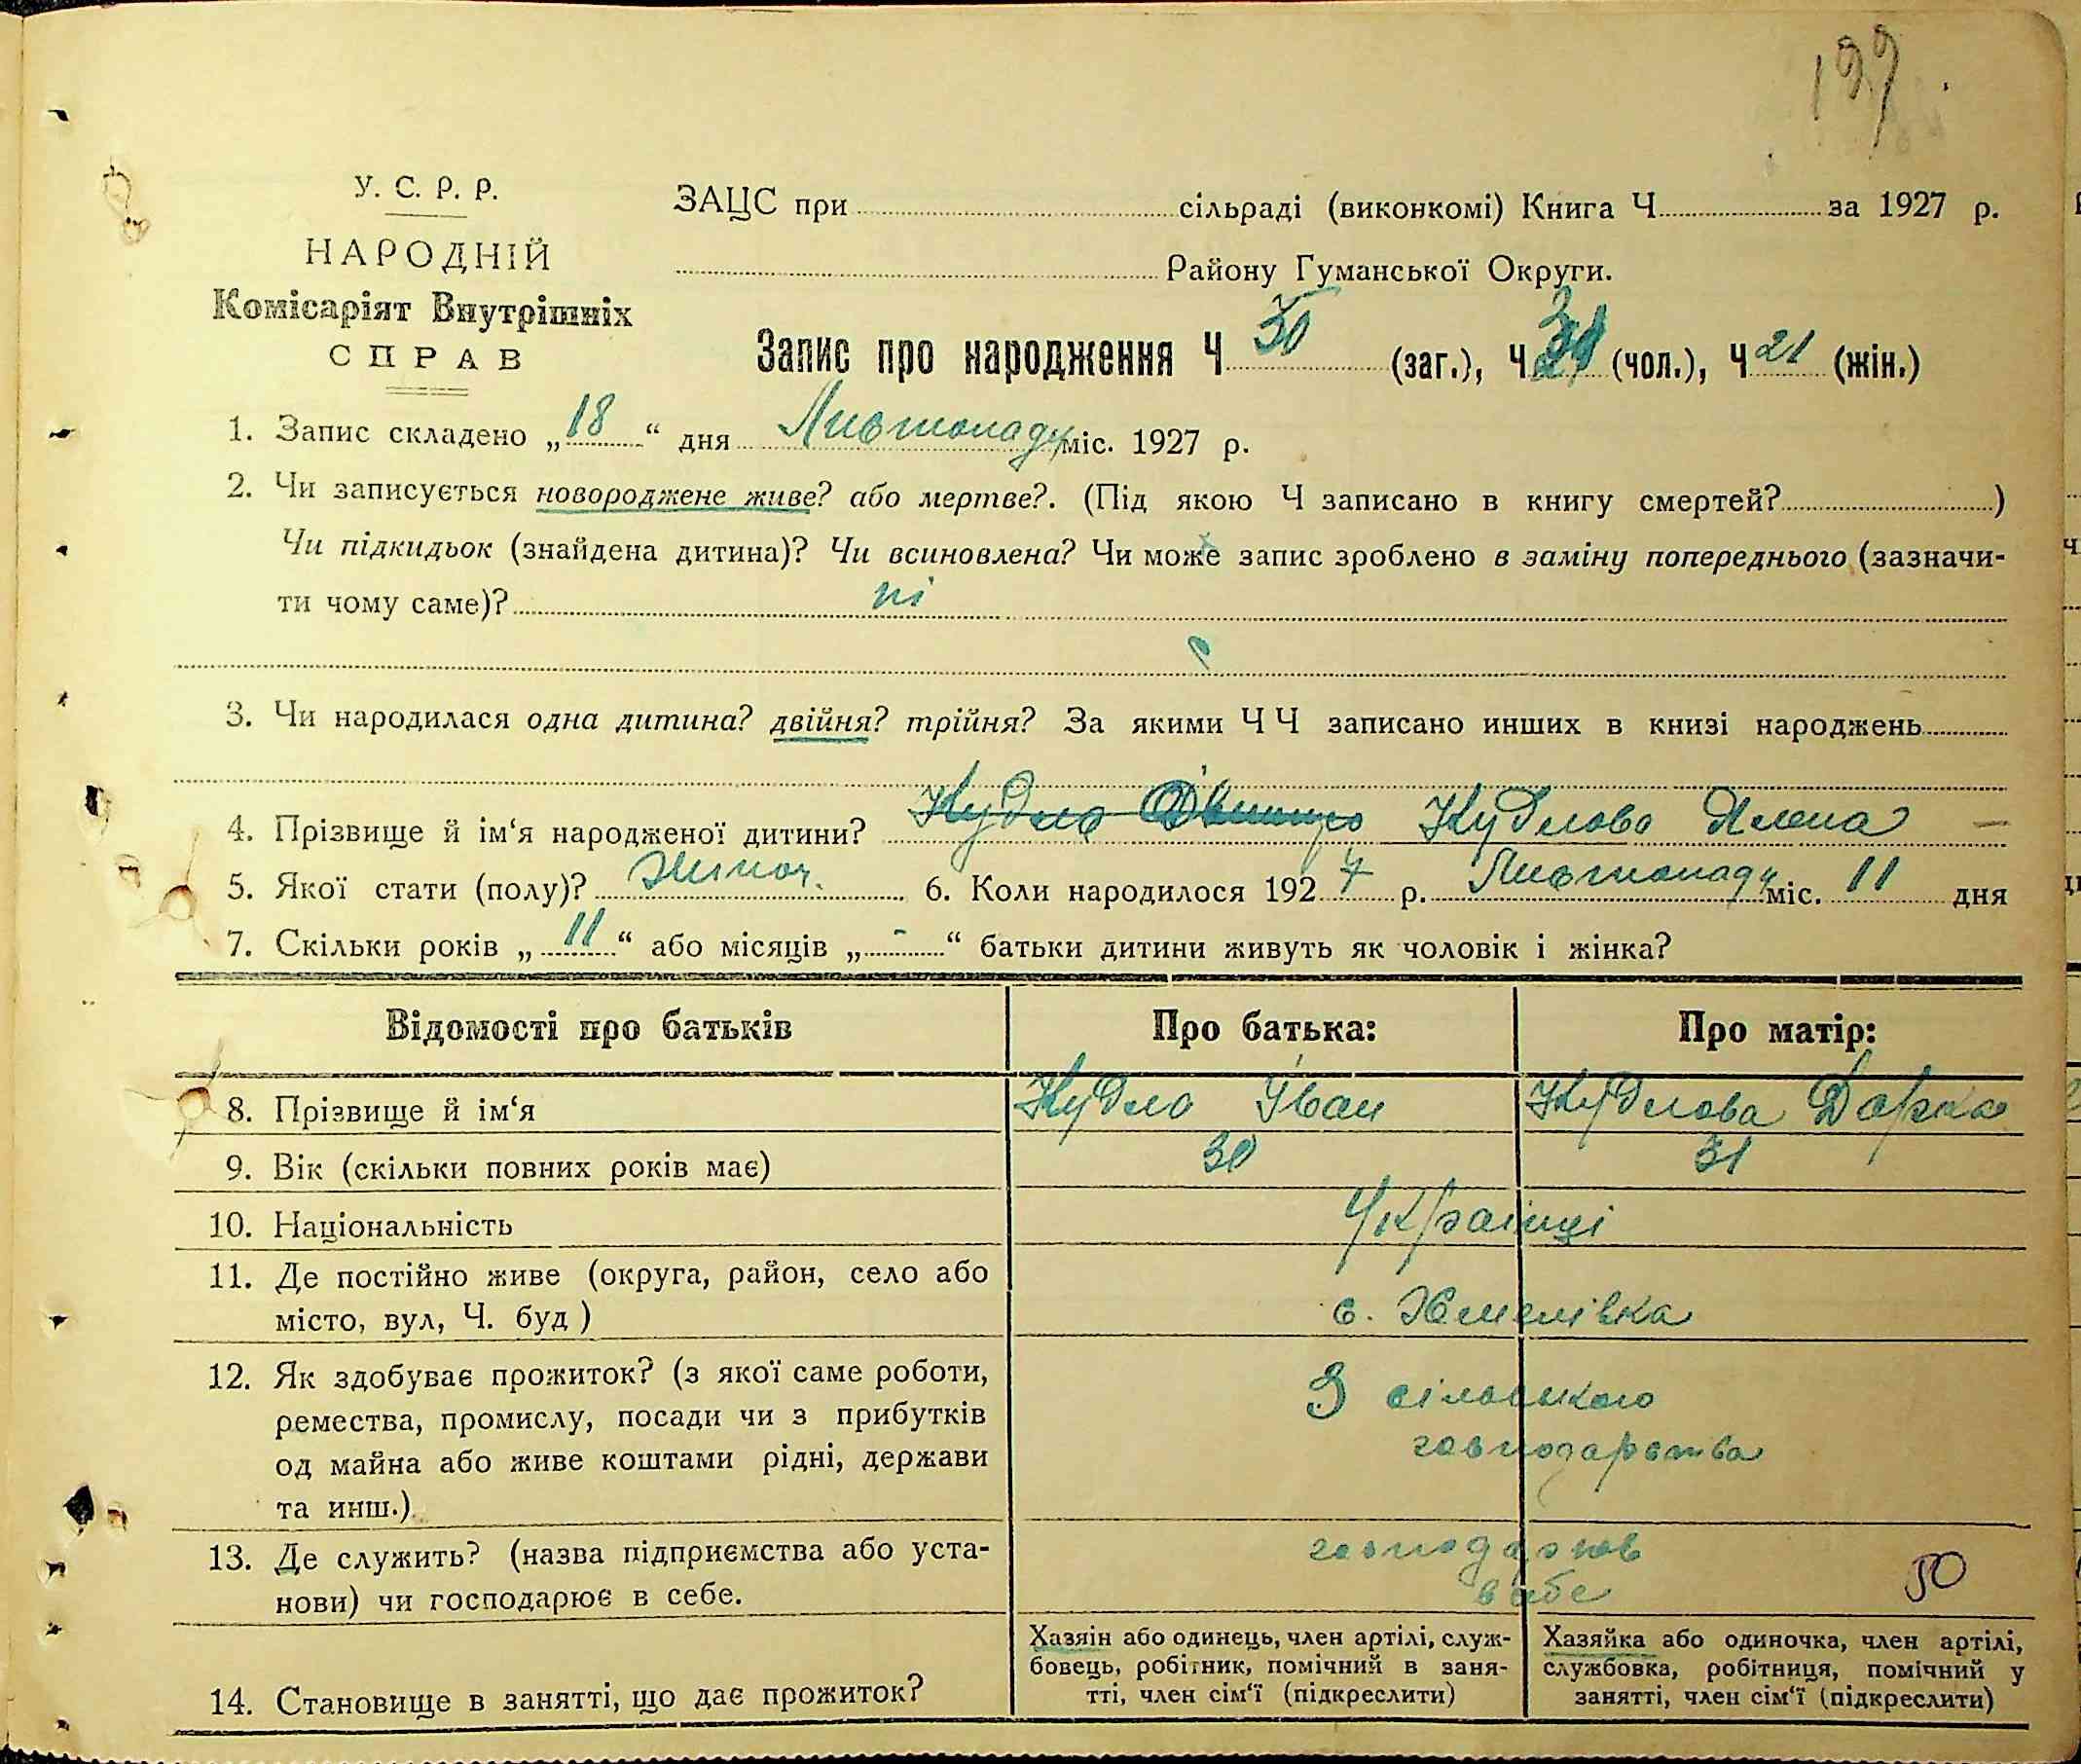 199
У. С. Р. Р.
НАРОДНІЙ
Комісаріят Внутрішніх
СПРАВ
ЗАЦС при сільраді (виконкомі) Книга Ч за 1927 р.
Району Гуманської Округи.
Запис про народження Ч 50 (заг.), Ч (чол.), Ч 21 (жін.)
1. Запис складено „18“ дня Листопаду міс. 1927 р.
2. Чи записується новороджене живе? або мертве?. (Під якою Ч записано в книгу смертей? )
Чи підкидьок (знайдена дитина)? Чи всиновлена? Чи може запис зроблено в заміну попереднього (зазначи-
ти чому саме)? ні
3. Чи народилася одна дитина? двійня? трійня? За якими ЧЧ записано инших в книзі народжень
4. Прізвище й ім‘я народженої дитини? Кудло Кудлова Ялена —
5. Якої стати (полу)? Жиноч. 6. Коли народилося 1927 р. Листопаду міс. 11 дня
7. Скільки років „11“ або місяців „-“ батьки дитини живуть як чоловік і жінка?
Відомості про батьків Про батька: Про матір:
8. Прізвище й ім‘я Кудло Іван Кудлова Дарка
9. Вік (скільки повних років має) 30 31
10. Національність Українці
11. Де постійно живе (округа, район, село або
місто, вул, Ч. буд ) с. Хмелівка
12. Як здобуває прожиток? (з якої саме роботи,
ремества, промислу, посади чи з прибутків
од майна або живе коштами рідні, держави
та инш.)
З сільського
господарства
13. Де служить? (назва підприємства або уста-
нови) чи господарює в себе.
в себе
50
14. Становище в занятті, що дає прожиток?
Хазяїн або одинець, член артілі, служ-
бовець, робітник, помічний в заня-
тті, член сім‘ї (підкреслити)
Хазяйка або одиночка, член артілі,
службовка, робітниця, помічний у
занятті, член сім‘ї (підкреслити)